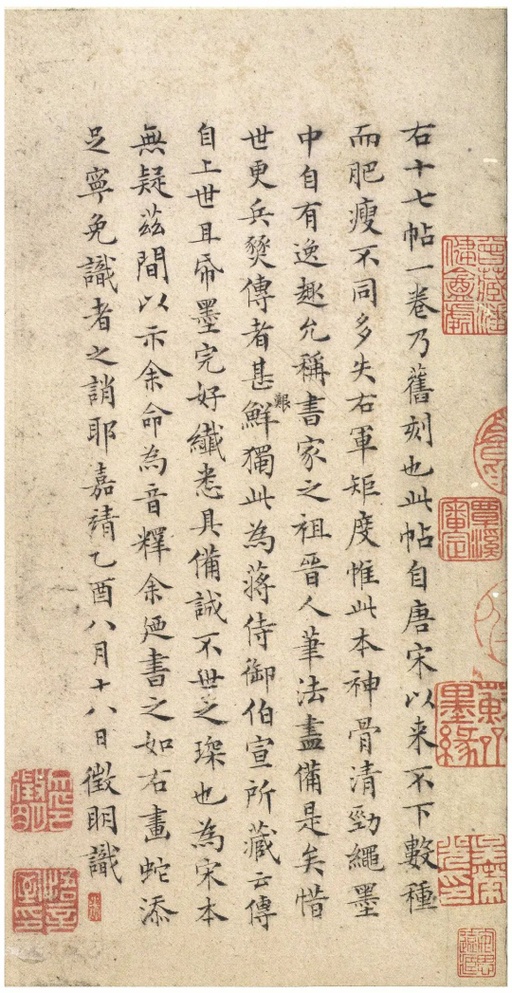 右十七帖一卷乃舊刻也此帖自唐宋以来不下數種
而肥瘦不同多失右軍矩度惟此本神骨清勁繩墨
中自有逸趣允稱書家之祖晉人筆法盡備是矣惜
世更兵燹傳者甚鮮獨此為蔣侍御伯宣所藏云傳
艱
自上世且帋墨完好纖悉具備誠不世之琛也為宋本
無疑茲間以示余命為音釋余廼書之如右畫蛇添
足寧免識者之誚耶嘉靖乙酉八月十八日徵明識
覃溪審定
墨緣